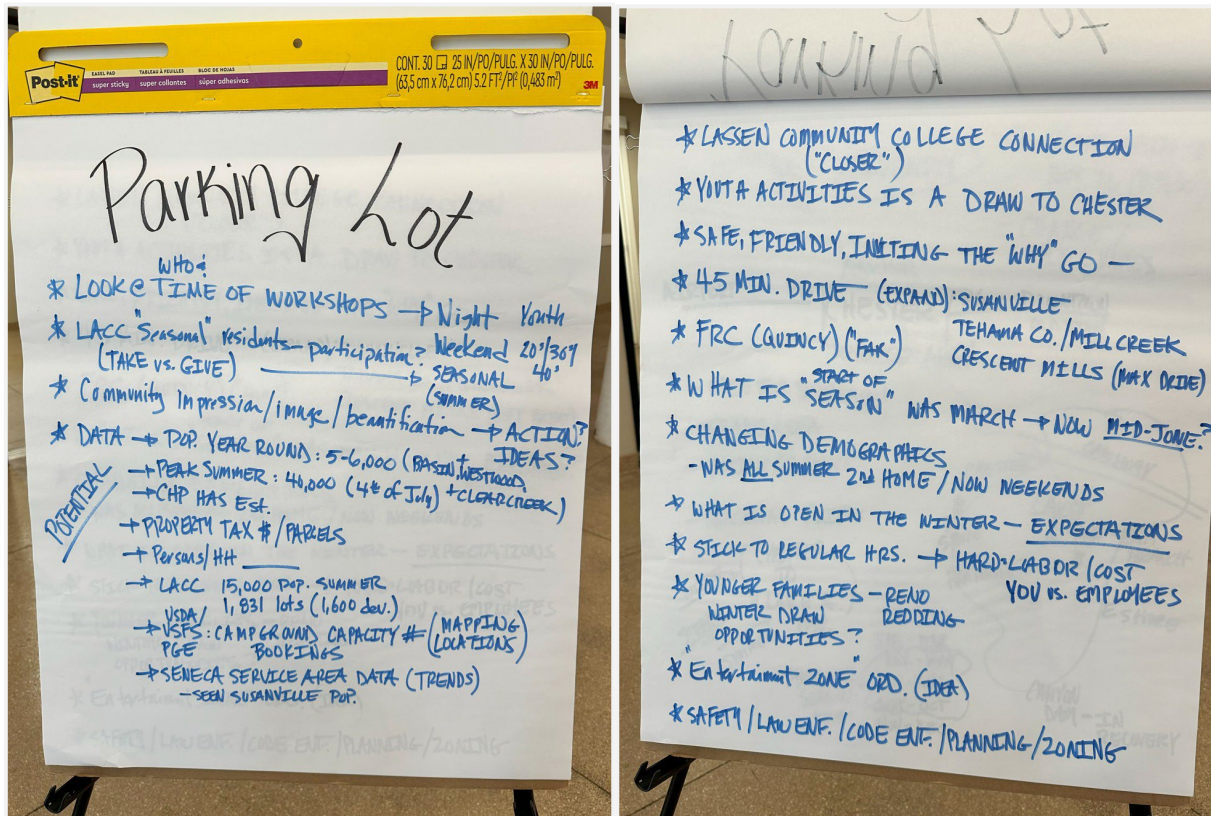 Post-it
EASEL PAD
super sticky
TABLEAU À FEUILLES
super collantes
BLOC DE HOJAS
súper adhesivas
CONT. 30 25 IN/PO/PULG. X 30 IN/PO/PULG.
(63,5 cm x 76,2 cm) 5.2 FT²/PI² (0,483 m²)
3M
Parking Lot
WHO &
* LOOK @ TIME OF WORKSHOPS → Night Youth
* LACC "Seasonal" residents - participation? Weekend 20's/30's
(TAKE vs. GIVE) → SEASONAL 40's
(SUMMER)
* Community Impression/image/beautification → ACTION?
IDEAS?
* DATA → POP. YEAR ROUND: 5-6,000 (BASIN, WESTWOOD,
+ CLEAR CREEK)
POTENTIAL
→ PEAK SUMMER: 40,000 (4th of July)
→ CHP HAS Est.
→ PROPERTY TAX #/PARCELS
→ Persons/HH
→ LACC 15,000 POP. SUMMER
1,831 lots (1,600 dev.)
→ USDA/
USFS: CAMPGROUND CAPACITY # (MAPPING
PGE BOOKINGS LOCATIONS)
→ SENECA SERVICE AREA DATA (TRENDS)
- SEEN SUSANVILLE POP.
Parking Lot
* LASSEN COMMUNITY COLLEGE CONNECTION
("CLOSER")
* YOUTH ACTIVITIES IS A DRAW TO CHESTER
* SAFE, FRIENDLY, INVITING THE "WHY" GO —
* 45 MIN. DRIVE — (EXPAND): SUSANVILLE
TEHAMA CO./MILL CREEK
CRESCENT MILLS (MAX DRIVE)
* FRC (QUINCY) ("FAR")
* WHAT IS "START OF
SEASON" WAS MARCH → NOW MID-JUNE?
* CHANGING DEMOGRAPHICS
- WAS ALL SUMMER 2nd HOME / NOW WEEKENDS
* WHAT IS OPEN IN THE WINTER — EXPECTATIONS
* STICK TO REGULAR HRS. → HARD-LABOR/COST
YOU vs. EMPLOYEES
* YOUNGER FAMILIES — RENO
WINTER DRAW REDDING
OPPORTUNITIES?
* "Entertainment ZONE" ORD. (IDEA)
* SAFETY/LAW ENF./CODE ENF./PLANNING/ZONING